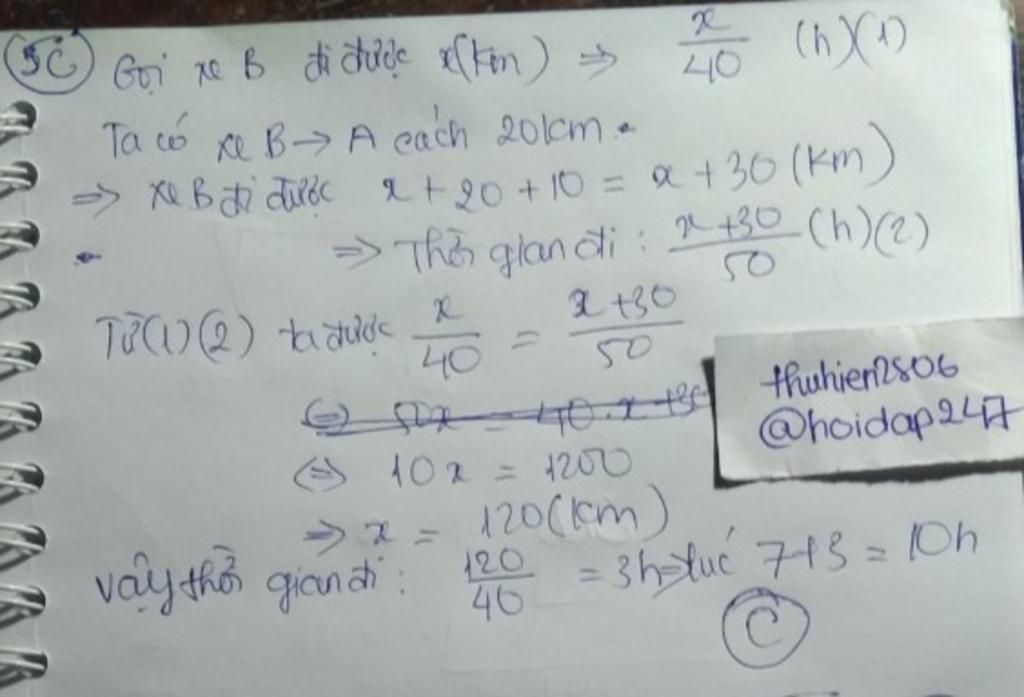 5C Gọi xe B đi được x(km) => x/40 (h)(1)
Ta có xe B → A cách 20km.
=> xe B đi được x + 20 + 10 = x + 30 (km)
=> Thời gian đi : x+30/50 (h)(2)
Từ (1)(2) ta được x/40 = x+30/50
(=) 50x = 40.x+30
<=> 10x = 1200
=> x = 120(km)
vậy thời gian đi : 120/40 = 3h => lúc 7+3 = 10h
C
thuhien2806
@hoidap247